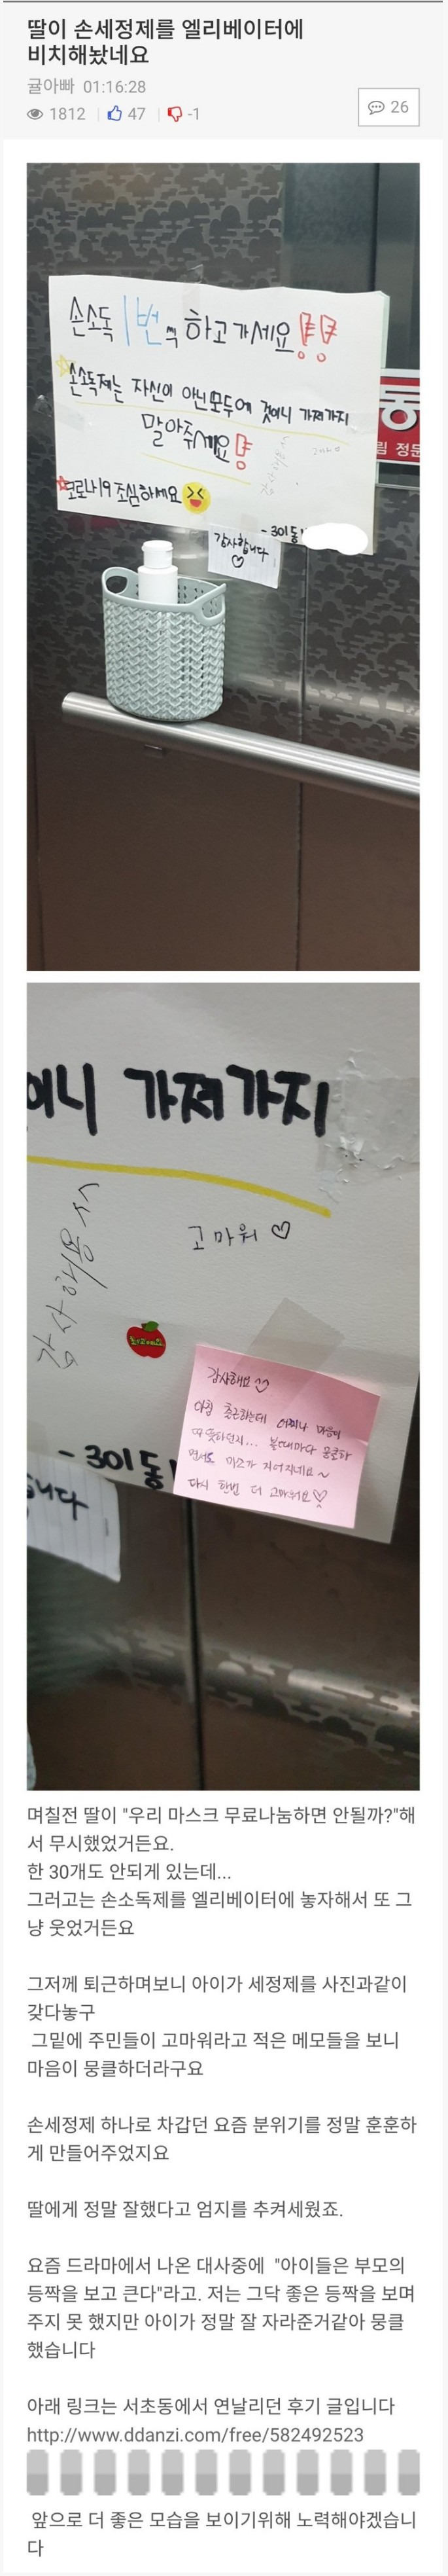 딸이 손세정제를 엘리베이터에
비치해놨네요
귤아빠 01:16:28
1812 47 -1
26
손소독 1번씩 하고가세요!!
손소독제는 자신이 아닌모두에 것이니 가져가지
말아주세요!
감사해용
고마워
코로나19 조심하세요
-301동
감사합니다
동
림 정문
이니 가져가지
감사해용
고마워 ♡
-301동
니다
감사해요 ♡
아침 출근하는데 어찌나 마음이
따뜻하던지... 볼때마다 뭉클하
면서도 미소가 지어지네요~
다시 한번 더 고마워요♡
며칠전 딸이 "우리 마스크 무료나눔하면 안될까?"해
서 무시했었거든요.
한 30개도 안되게 있는데...
그러고는 손소독제를 엘리베이터에 놓자해서 또 그
냥 웃었거든요
그저께 퇴근하며보니 아이가 세정제를 사진과같이
갖다놓구
그밑에 주민들이 고마워라고 적은 메모들을 보니
마음이 뭉클하더라구요
손세정제 하나로 차갑던 요즘 분위기를 정말 훈훈하
게 만들어주었지요
딸에게 정말 잘했다고 엄지를 추켜세웠죠.
요즘 드라마에서 나온 대사중에 "아이들은 부모의
등짝을 보고 큰다"라고. 저는 그닥 좋은 등짝을 보며
주지 못 했지만 아이가 정말 잘 자라준거같아 뭉클
했습니다
아래 링크는 서초동에서 연날리던 후기 글입니다
http://www.ddanzi.com/free/582492523
앞으로 더 좋은 모습을 보이기위해 노력해야겠습니
다